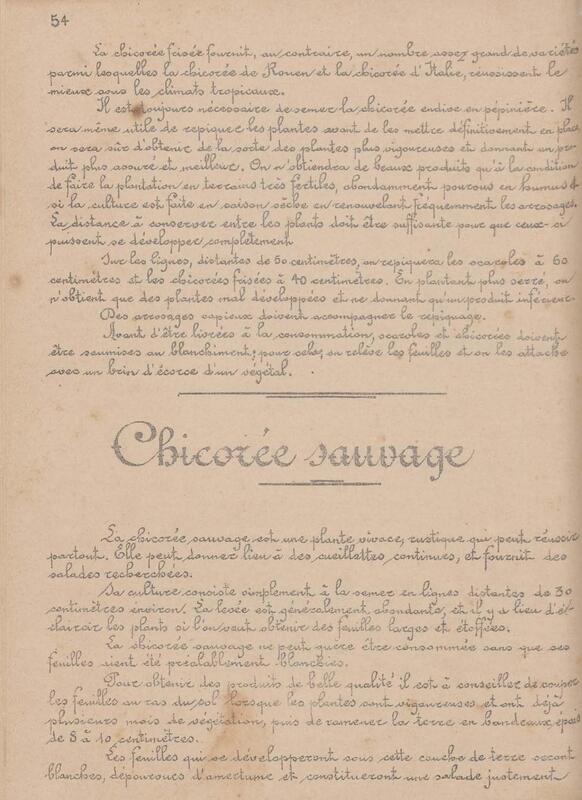 54
La chicorée frisée fournit, au contraire, un nombre assez grand de variétés
parmi lesquelles la chicorée de Rouen et la chicorée d'Italie, réussissent le
mieux sous les climats tropicaux.
Il est toujours nécessaire de semer la chicorée endive en pépinière. Il
sera même utile de repiquer les plantes avant de les mettre définitivement en place
on sera sûr d'obtenir de la sorte des plantes plus vigoureuses et donnant un pro-
duit plus assuré et meilleur. On n'obtiendra de beaux produits qu'à la condition
de faire la plantation en terrains très fertiles, abondamment pourvus en humus et
si la culture est faite en saison sèche en renouvelant fréquemment les arrosages.
La distance à conserver entre les plants doit être suffisante pour que ceux-ci
puissent se développer complètement
Sur les lignes, distantes de 50 centimètres, on repiquera les scaroles à 60
centimètres et les chicorées frisées à 40 centimètres. En plantant plus serré, on
n'obtient que des plantes mal développées et ne donnant qu'un produit inférieur.
Des arrosages copieux doivent accompagner le repiquage.
Avant d'être livrées à la consommation, scaroles et chicorées doivent
être soumises au blanchiment; pour cela, on relève les feuilles et on les attache
avec un brin d'écorce d'un végétal.
Chicorée sauvage
La chicorée sauvage est une plante vivace, rustique qui peut réussir
partout. Elle peut donner lieu à des cueillettes continues, et fournit des
salades recherchées.
Sa culture consiste simplement à la semer en lignes distantes de 30
centimètres environ. La levée est généralement abondante, et il y a lieu d'é-
claircir les plants si l'on veut obtenir des feuilles larges et étoffées.
La chicorée sauvage ne peut guère être consommée sans que ses
feuilles aient été préalablement blanchies.
Pour obtenir des produits de belle qualité il est à conseiller de couper
les feuilles au ras du sol lorsque les plantes sont vigoureuses et ont déjà
plusieurs mois de végétation, puis de ramener la terre en bandeaux épais
de 8 à 10 centimètres.
Les feuilles qui se développeront sous cette couche de terre seront
blanches, dépourvues d'amertume et constitueront une salade justement